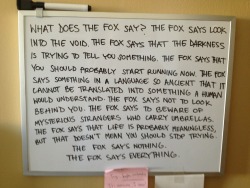 WHAT DOES THE FOX SAY? THE FOX SAYS LOOK
INTO THE VOID. THE FOX SAYS THAT THE DARKNESS
IS TRYING TO TELL YOU SOMETHING. THE FOX SAYS THAT
YOU SHOULD PROBABLY START RUNNING NOW. THE FOX
SAYS SOMETHING IN A LANGUAGE SO ANCIENT THAT IT
CANNOT BE TRANSLATED INTO SOMETHING A HUMAN
WOULD UNDERSTAND. THE FOX SAYS NOT TO LOOK
BEHIND YOU. THE FOX SAYS TO BEWARE OF
MYSTERIOUS STRANGERS WHO CARRY UMBRELLAS.
THE FOX SAYS THAT LIFE IS PROBABLY MEANINGLESS,
BUT THAT DOESN'T MEAN YOU SHOULD STOP TRYING.
THE FOX SAYS NOTHING.
THE FOX SAYS EVERYTHING.